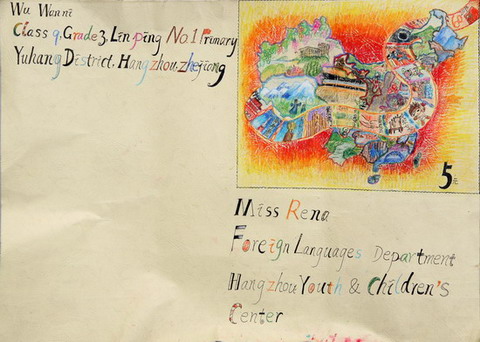 Wu Wanni
Class 9, Grade 3, Linping No.1 Primary
Yuhang District, Hangzhou, Zhejiang
5元
Miss Rena
Foreign Languages Department
Hangzhou Youth & Children's
Center